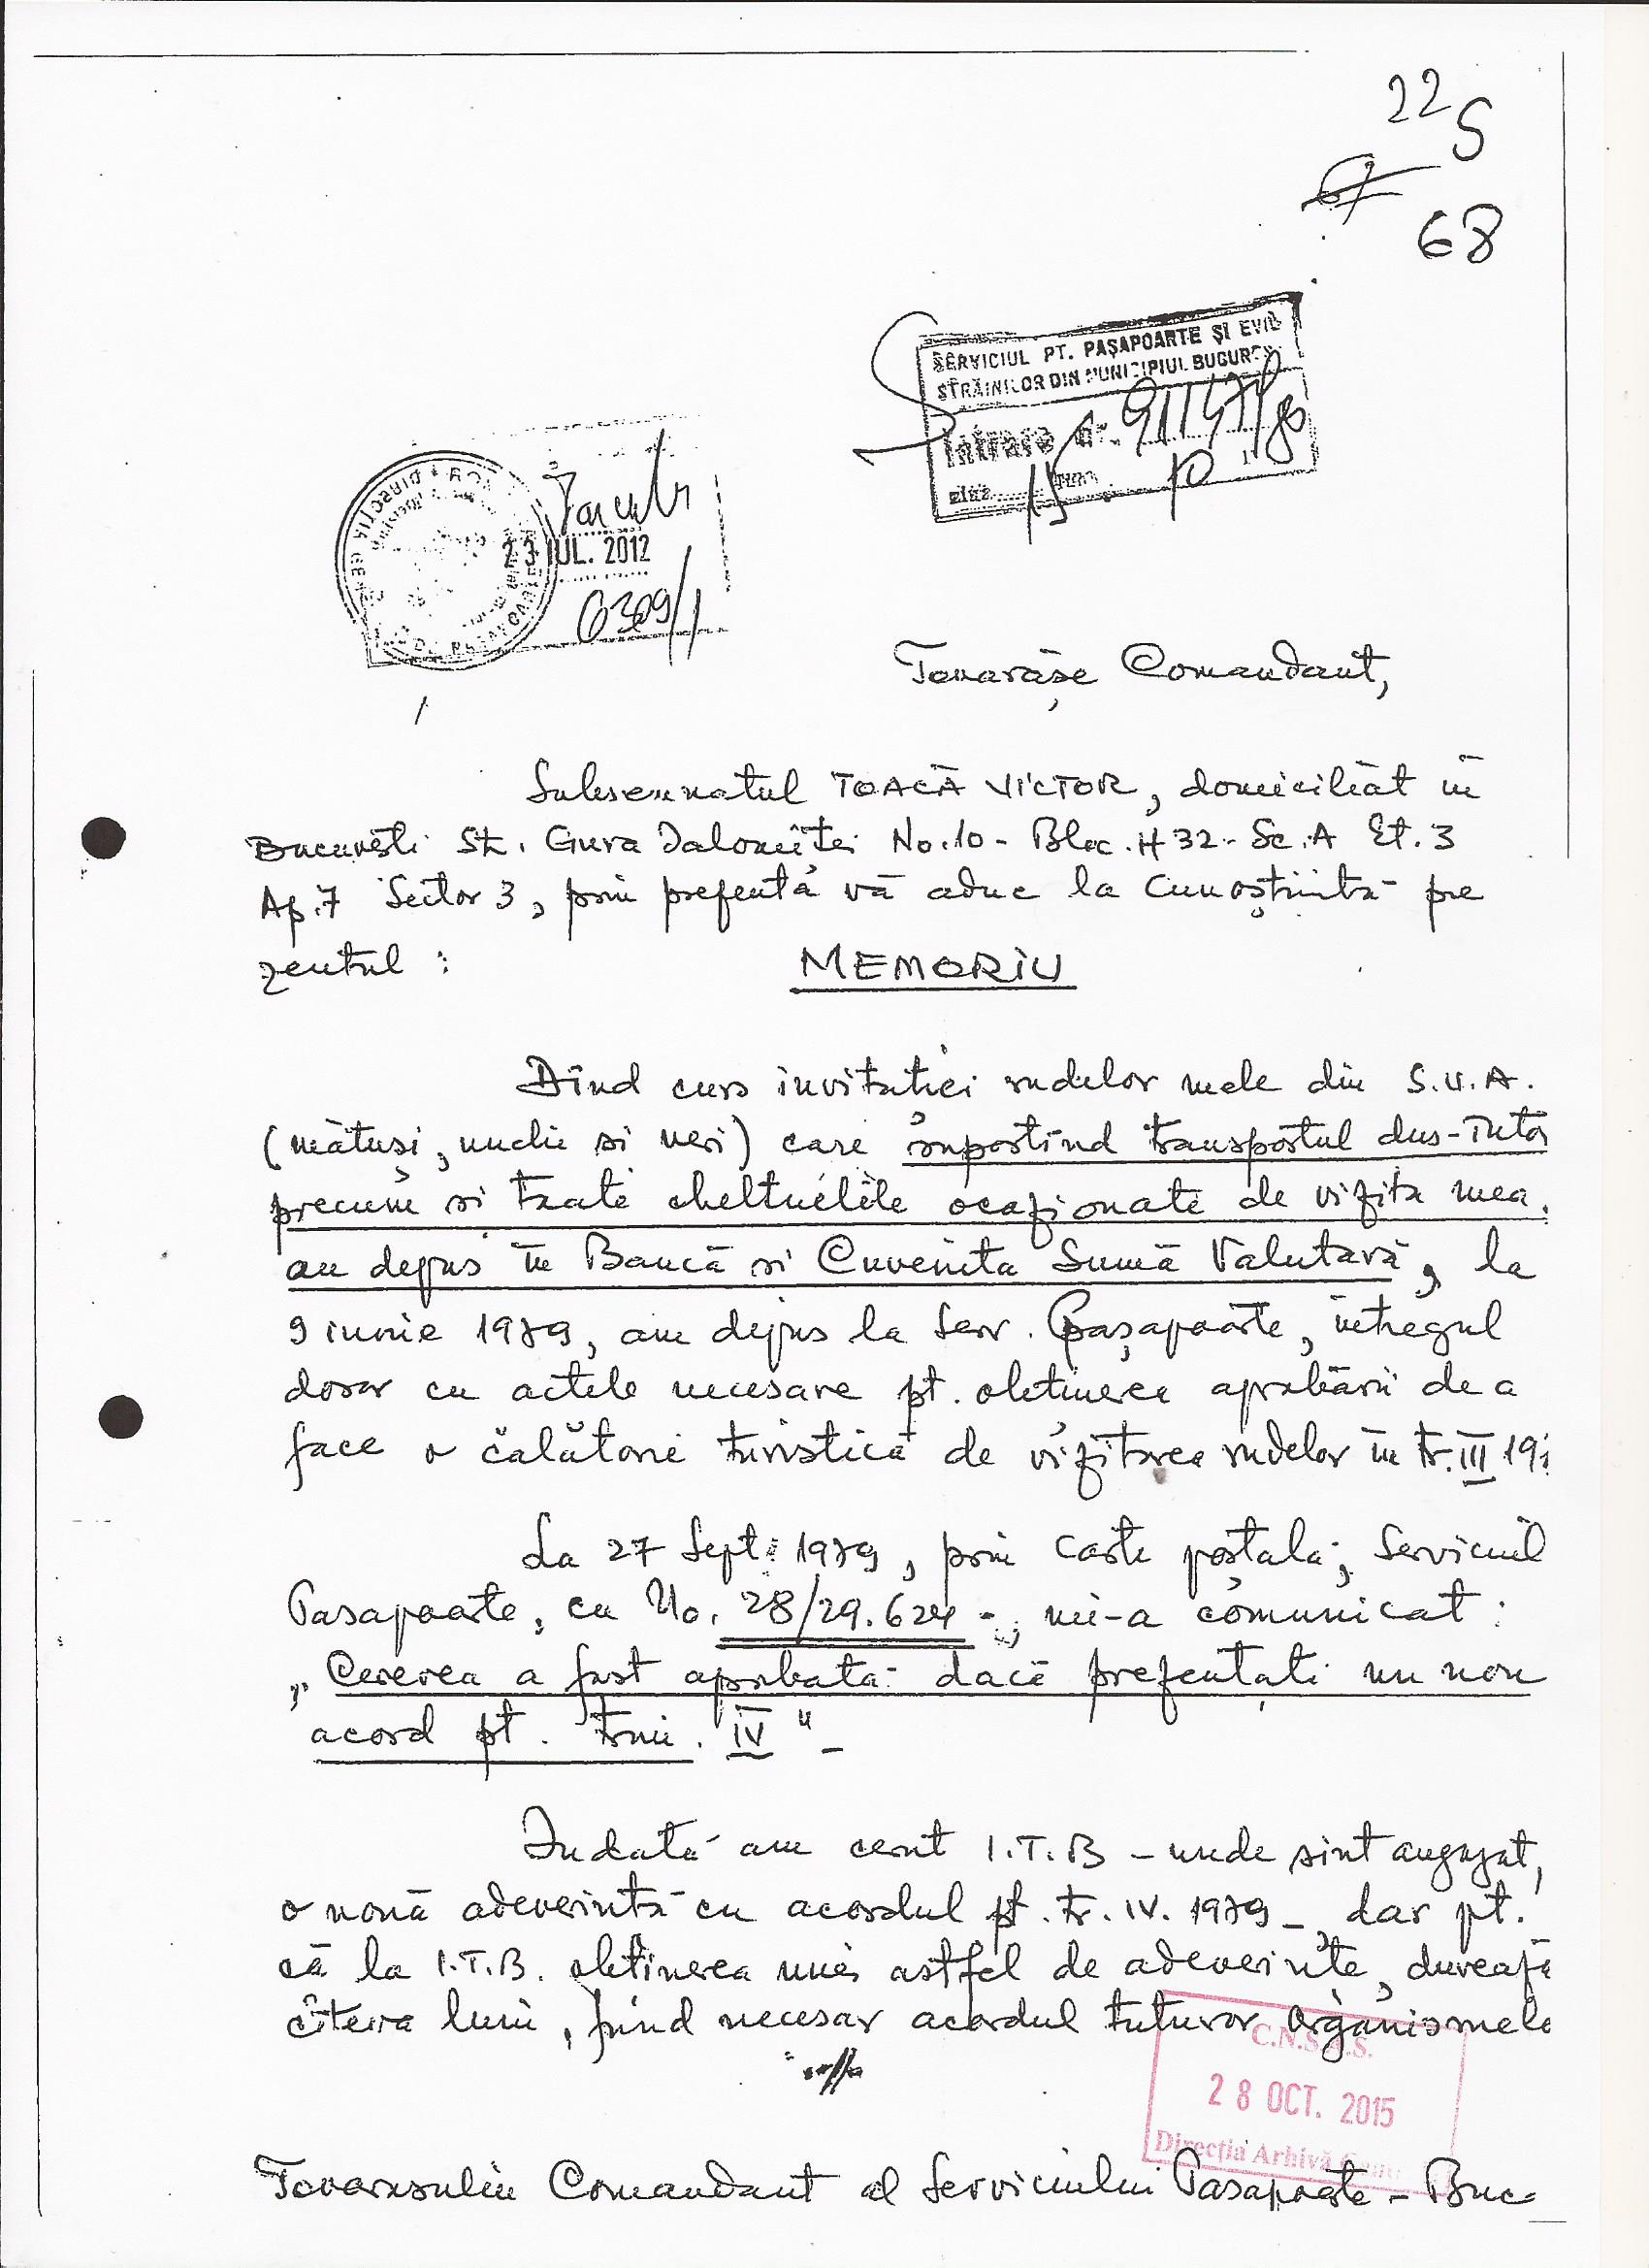 22
S
67
68
SERVICIUL PT. PAŞAPOARTE ŞI EVID
STRĂINILOR DIN MUNICIPIUL BUCUREȘ
Intrare nr.
ziua
23 IUL. 2012
6309/1
Tovarăşe Comandant,
Subsemnatul TOACĂ VICTOR, domiciliat în
Bucureşti Str. Gura Ialomiței No.10 - Bloc. H 32 - Sc. A Et. 3
Ap. 7 Sector 3, prin prezenta vă aduc la cunoştiință pre
zentul : MEMORIU
Dînd curs invitatiei rudelor mele din S.U.A.
(mătuşi, unchi si veri) care suportînd transportul dus-întors
precum si toate cheltuelile ocazionate de vizita mea,
au depus în Bancă si Cuvenita Sumă Valutară, la
9 iunie 1979, am depus la Serv. Paşapoarte, întregul
dosar cu actele necesare pt. obtinerea aprobării de a
face o călătorie turistică de vizitarea rudelor în tr. III 19
La 27 Sept. 1979, prin carte poştala, Serviciul
Pasapoarte, cu No. 28/29.624 -, mi-a comunicat :
„Cererea a fost aprobata dacă prezentați un nou
acord pt. trim. IV" -
Indată am cerut I.T.B - unde sînt angajat,
o nouă adeverintă cu acordul pt. tr. IV. 1979 -, dar pt.
că la I.T.B. obtinerea unei astfel de adeverințe, durează
cîteva luni, fiind necesar acordul tuturor organismele
C.N.S.A.S.
28 OCT. 2015
Direcţia Arhivă
Tovarasului Comandant al Serviciului Pasapoarte - Buc